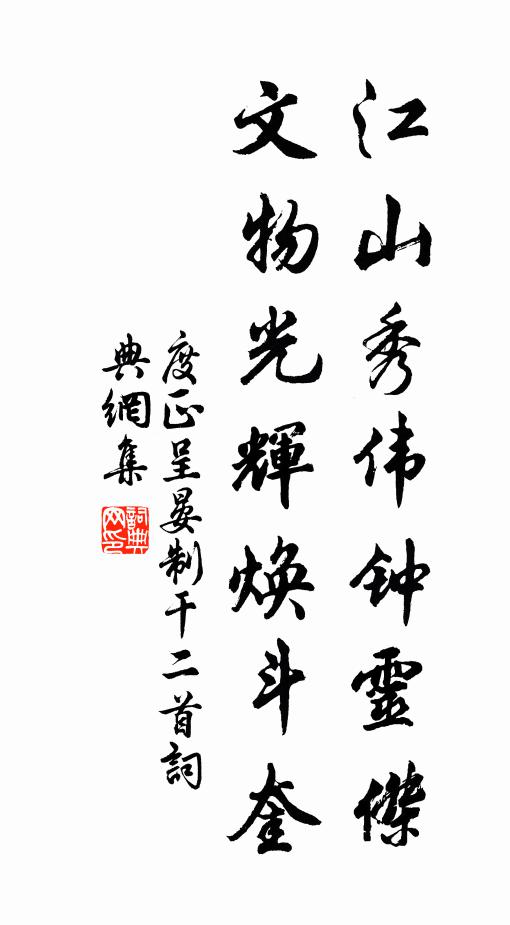 江山秀伟钟靈傑
文物光輝焕斗奎
度正呈晏制干二首詞
典網集
詞典网印